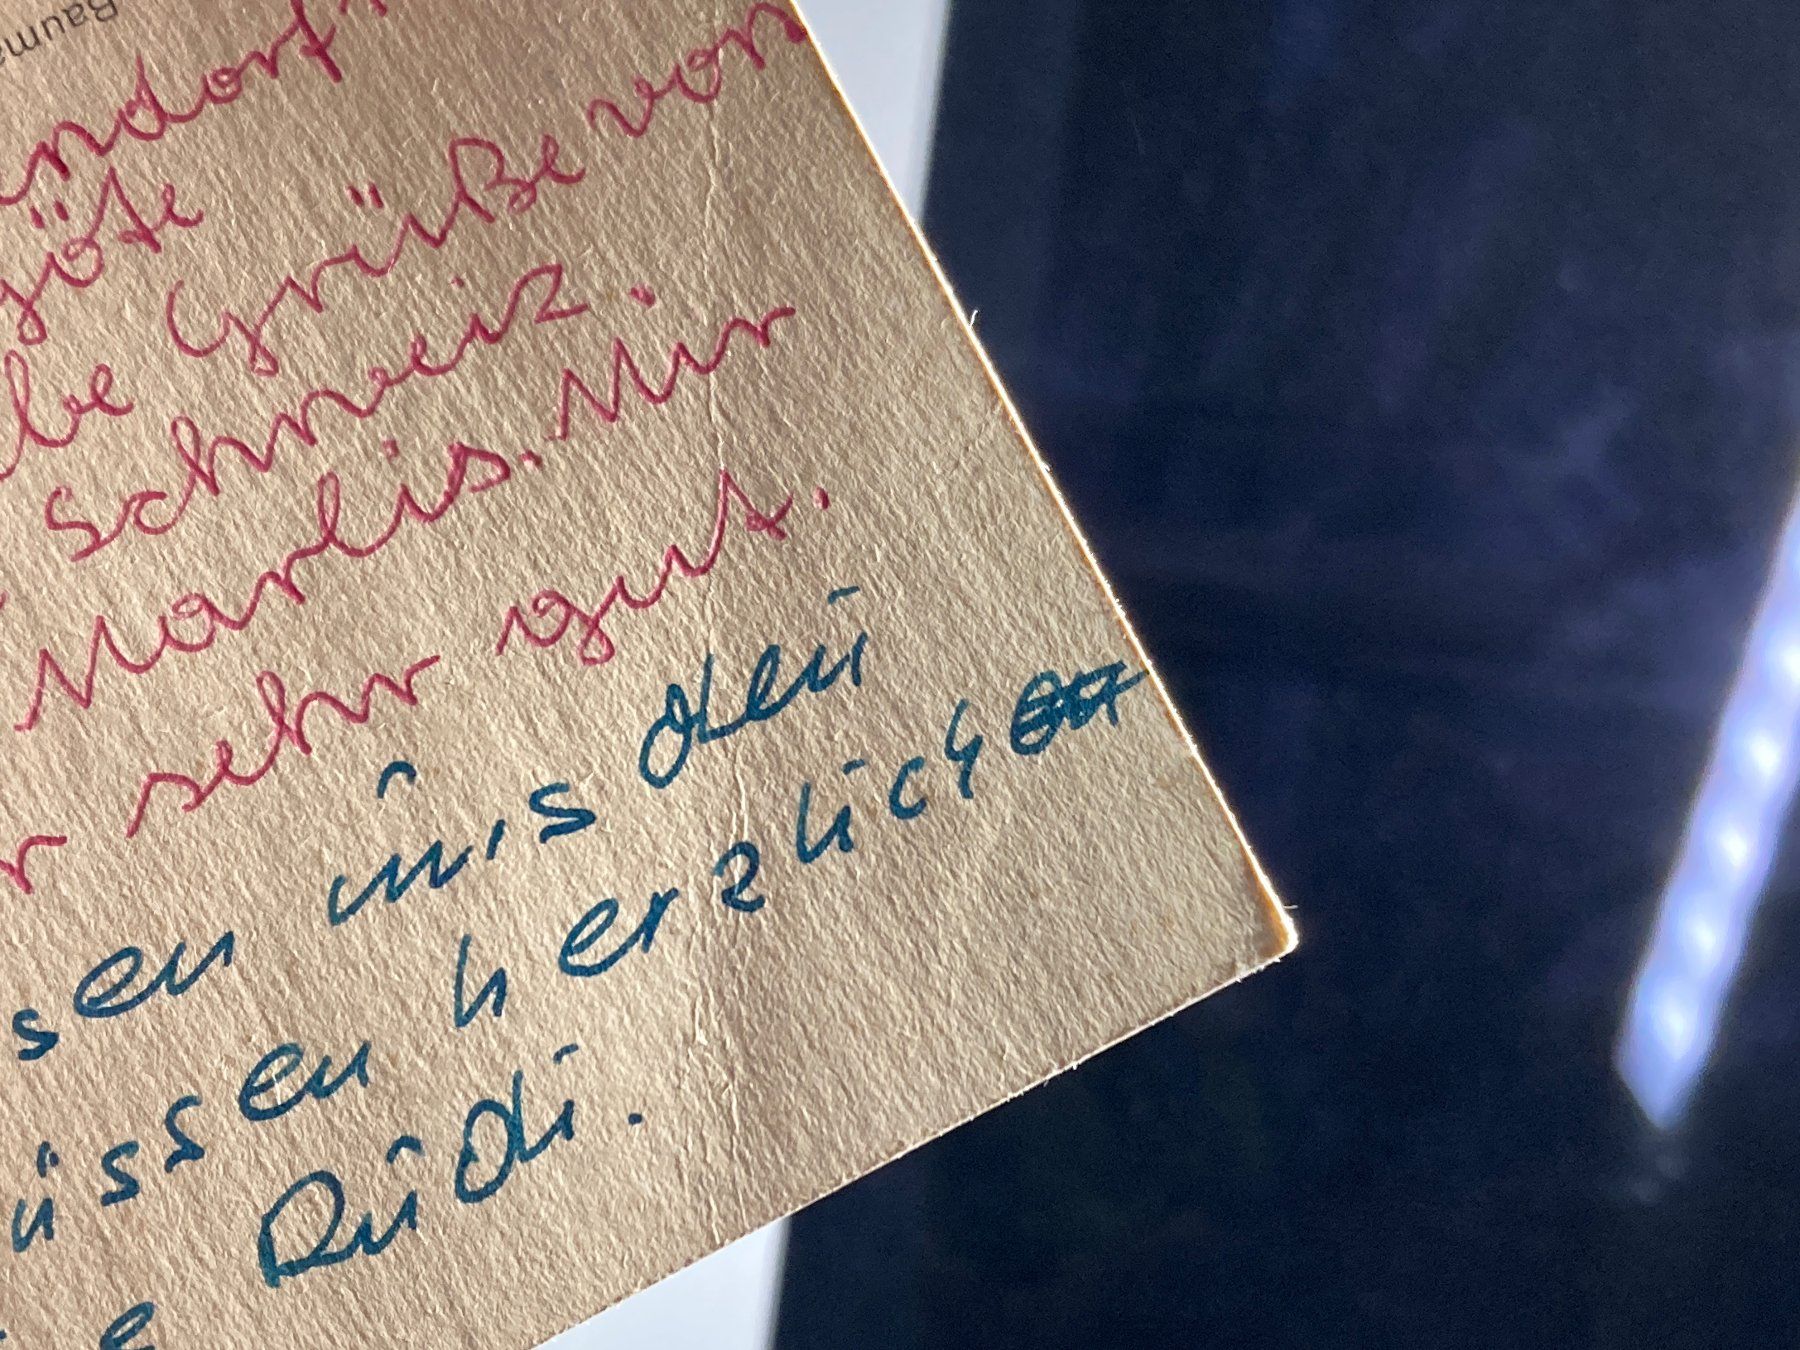 Bauma
ndorf
göte
be Grüße von
Schweiz
Marlis. Mir
sehr gut.
sen uns den
üssen herzlich
Rüdi.
e